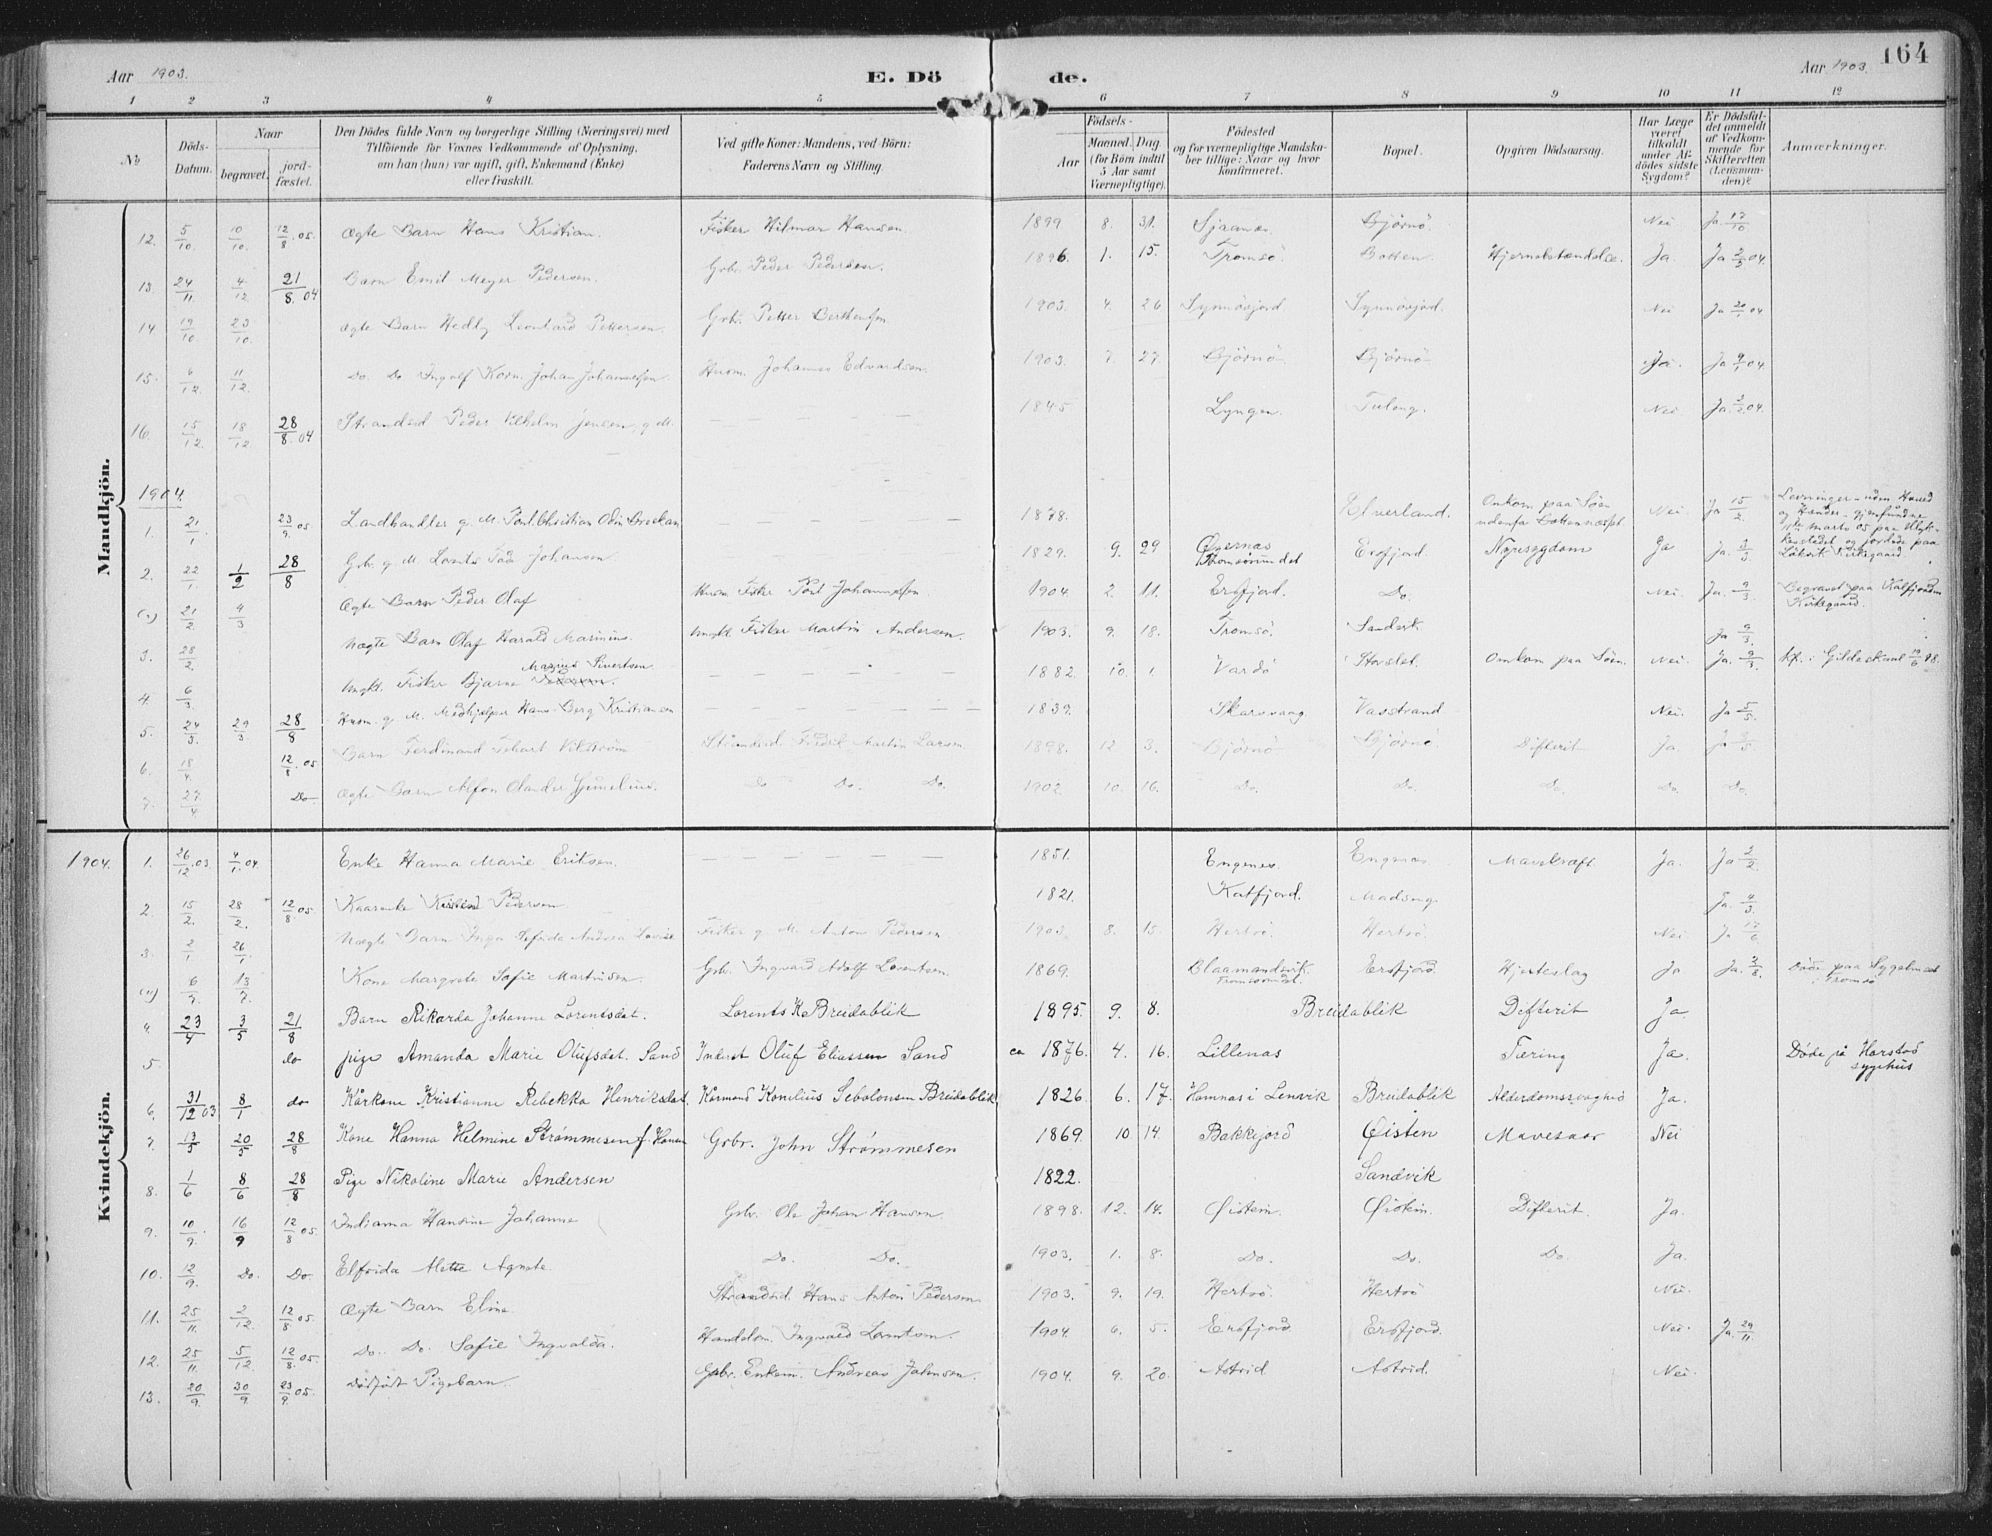 164
Aar 1903. E. Dö de. Aar 1903.
1 2 3 4 5 6 7 8 9 10 11 12
No
Döds-Datum.
Naar
begravet.
jord-fæstet.
Den Dödes fulde Navn og borgerlige Stilling (Næringsvei) med
Tilföiende for Voxnes Vedkommende af Oplysning,
om han (hun) var ugift, gift, Enkemand (Enke)
eller fraskilt.
Ved gifte Koner: Mandens, ved Börn:
Faderens Navn og Stilling.
Födsels-
Aar
Maaned. Dag.
(for Börn indtil
5 Aar samt
Værnepligtige).
Födested
og for værnepligtige Mandska-
ber tillige: Naar og hvor
konfirmeret.
Bopæl.
Opgiven Dödsaarsag.
Har Læge
været
tilkaldt
under Af-
dödes sidste
Sygdom?
Er Dödsfal-
det anmeldt
af Vedkom-
mende for
Skifteretten
(Lensman-
den)?
Anmærkninger.
Mandkjön.
12. 5/10. 10/10. 12/8.05. Ægte Barn Hans Kristian. Fisker Hilmar Hansen. 1899 8. 31. Sjaanes. Bjørnø. Nei Ja 17/10
13. 24/11. 4/12. 21/8.04 Barn Emil Meyer Pedersen. Gbr. Peder Pedersen. 1896. 1. 15. Tromsö. Botten. Hjernebetændelse. Ja. Ja 2/3 04.
14 19/10 23/10. Ægte Barn Hedly Leonhard Pettersen. Gbr. Petter Berthensen 1903. 4. 26 Nei Ja 20/1 04
15. 6/12 11/12. Do. Do Ingolf Korn. Johan Johannesen. Husm. Johannes Edvardsen. 1903. 7. 27. Bjørnø Bjørnø Ja. Ja 9/1 04.
16. 15/12. 18/12 28/8.04 Strandsid Peder Vilhelm Jensen, g. M. — — — — 1845 Lyngen. Tuleng. Nei Ja. 2/2 04.
1904.
1. 21/1. 23/9.05 Landhandler g. M. Odin Breekan — — — 1878. Elverland. Omkom paa Søen udenfor Nei Ja 15/2. Levninger uden Hoved og Hænder gjenfundne marts 05 paa og jordede paa Kirkegaard.
2. 22/1 1/2 28/8 Gbr. g. M. Lorents Johansen. — — — 1829. 9. 29 Tromsösundet Ersfjord. Nyresygdom Ja Ja. 3/3
21/2 4/3 Ægte Barn Peder Olaf Husm. Fisker Johannesen. 1904 2. 11. Ersfjord. Do. Nei. Ja. 9/3. Begravet paa Kalfjorden Kirkegaard.
3. 28/2. Uægte Barn Olaf Harald Marinius. Ungkl. Fisker Martin Andersen. 1903. 9. 18. Tromsö. Sandvik Ja 9/3.
4. 6/3. Ungkl. Fisker Bjarne Marius Sivertsen — — — 1882. 10. 1. Vardö Storslet. Omkom paa Søen. Nei. Ja. 9/3. Kf. i Gildeskaal 98.
5. 24/3. 29/3. 28/8 Husm. g. M. Medhjelper Hans Berg Kristiansen — — — — 1839. Skarsvaag. Vasstrand Nei. Ja 5/5.
6. 18/4. 12/8.05. Barn Ferdinand Vikstrøm Strandsid. Fredrik Martin Larsen 1898. 12 3. Bjørnø Bjørnø Difterit Ja. Ja 3/5.
7. 27/4 Do Ægte Barn Alfon Olander Do Do. Do. 1902 10. 16. Do. Do. Do. Do Do.
Kvindekjön.
1904. 1. 26/12.03 4/1.04 Enke Hanna Marie Eriksen. — — — — 1851. Engenes. Engenes Mavekræft. Ja. Ja 2/2.
2. 15/2. 28/2. 12/8.05. Kaarenke Pedersen — — — 1821. Katfjord. Ja. 4/3.
3. 2/1 26/1. Uægte Barn Inga Andrea Lovise Fisker g. M. Anton Pedersen 1903. 8. 15. Hertsö. Hertsö. Nei Ja 17/6
6/7. 13/7. Kone Margrete Sofie Martinsen. Gbr. Ingvard Adolf Lorentsen. 1869. Blaamandsvik. Tromsösundet. Ersfjord. Hjerteslag Ja Ja. 3/8. Døde paa Sygehuset i Tromsø
4. 23/4 3/5 21/8 Barn Rikarda Johanne Lorentsdat. Lorents K Breidablik 1895. 9. 8. Breidablik Difterit Ja.
5. do pige Amanda Marie Olufsdat. Sand Inderst Oluf Eliassen Sand ca 1876. 4. 16. Lillenas Tæring Ja. Døde på Harstad sygehus
6. 31/12 03 8/1 do Kårkone Kristianne Rebekka Henriksdat. Kårmand Konelius Sebolonsen Breidablik 1826 6. 17. Hamnas i Lenvik Breidablik Alderdomssvaghed Ja.
7. 13/5 20/5 28/8 Kone Hanna Helmine Strømmesen f. Hansen Gsbr. John Strømmesen 1869. 10. 14. Bakkejord Øisten Mavesaar Nei
8. 1/6 8/6 28/8 Pige Nikoline Marie Andersen 1822. Sandvik
9. 10/9. 16/9 12/8 05. Indianna Hansine Johanne Gsbr. Ole Johan Hansen. 1898. 12. 14. Øistein. Øistein. Difterit. Ja.
10. 12/9. Do. Do. Elfrida Alette Agnete. Do. Do. 1903. 1. 8. Do. Do. Do. Ja.
11. 25/11. 2/12. 12/8 05. Ægte Barn Eline. Strandsid. Hans Anton Pedersen 1903. 9. 19. Hertsö. Hertsö Nei.
12. 25/11. 5/12. 12/8.05. Do. Do. Sofie Ingvalda. Handelsm. Ingvald Lorentsen. 1904. 6. 5. Ersfjord Ersfjord. Nei. Ja. 29/11.
13. 20/9. 30/9 23/9 05. Dødfødt Pigebarn Gsbr. Enkem. Andreas Johnsen. 1904. 9. 20. Astrid Astrid. Nei.